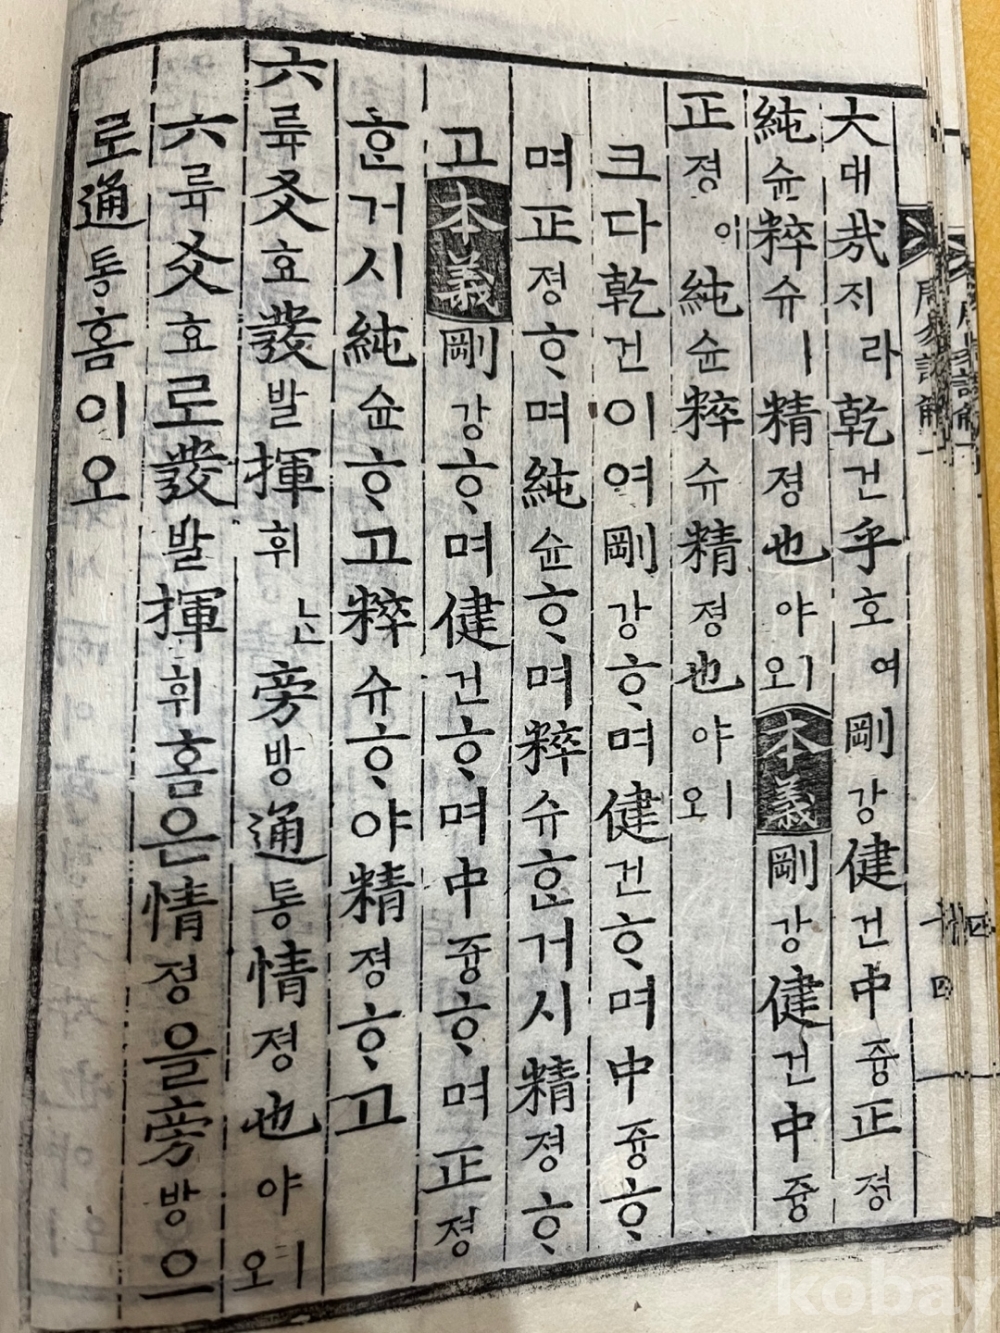 大대哉지라乾건乎호여剛강健건中즁正졍
純슌粹슈ㅣ精졍也야ㅣ오本義剛강健건中즁
正졍이純슌粹슈精졍也야ㅣ오
크다乾건이여剛강ᄒᆞ며健건ᄒᆞ며中즁ᄒᆞ
며正졍ᄒᆞ며純슌ᄒᆞ며粹슈ᄒᆞᆫ거시精졍ᄒᆞ
고本義剛강ᄒᆞ며健건ᄒᆞ며中즁ᄒᆞ며正졍
ᄒᆞᆫ거시純슌ᄒᆞ고粹슈ᄒᆞ야精졍ᄒᆞ고
六륙爻효發발揮휘ᄂᆞᆫ旁방通통情졍也야ㅣ오
六륙爻효로發발揮휘홈은情졍을旁방으
로通통홈이오
周易諺解一
kobay